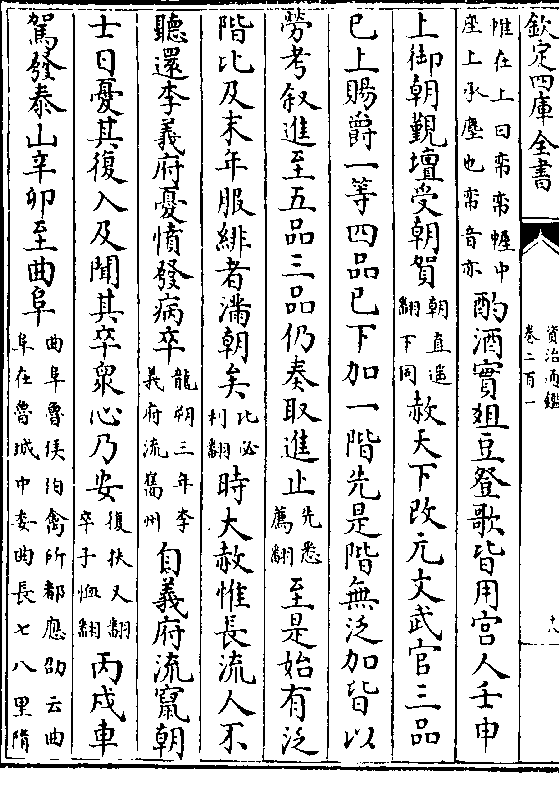 欽定四庫全書
資治通鑑
卷二百一
惟在上曰帟帟幄中
座上承塵也帟音亦
酌酒實爼豆登歌皆用宮人壬申
上御朝覲壇受朝賀
朝直遥
翻下同
赦天下改元文武官三品
已上賜爵一等四品已下加一階先是階無泛加皆以
勞考叙進至五品三品仍奏取進止
先悉
薦翻
至是始有泛
階比及末年服緋者滿朝矣
比必
利翻
時大赦惟長流人不
聽還李義府憂憤發病卒
龍朔三年李
義府流巂州
自義府流竄朝
士日憂其復入及聞其卒衆心乃安
復扶又翻
卒子恤翻
丙戌車
駕發泰山辛卯至曲阜
曲阜魯侯伯禽所都應劭云曲
阜在魯城中委曲長七八里隋